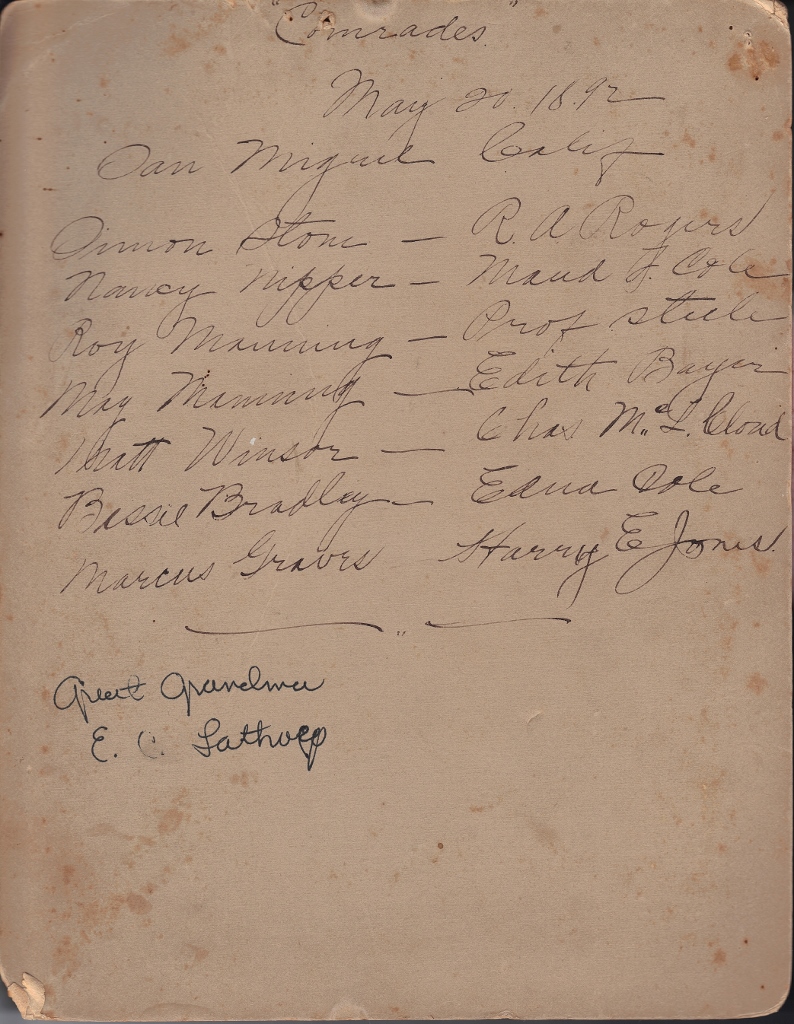 "Comrades"
May 20. 1892
San Miguel Calif
Simon Stone — R. A Rogers
Nancy Nipper — Maud F. Cole
Roy Manning — Prof Steele
May Manning — Edith Bayer
Matt Winsor — Chas Mc. L. Cloud
Bessie Bradley — Edna Dole
Marcus Graves Harry E Jones.
Great Grandma
E. C. Lathrop